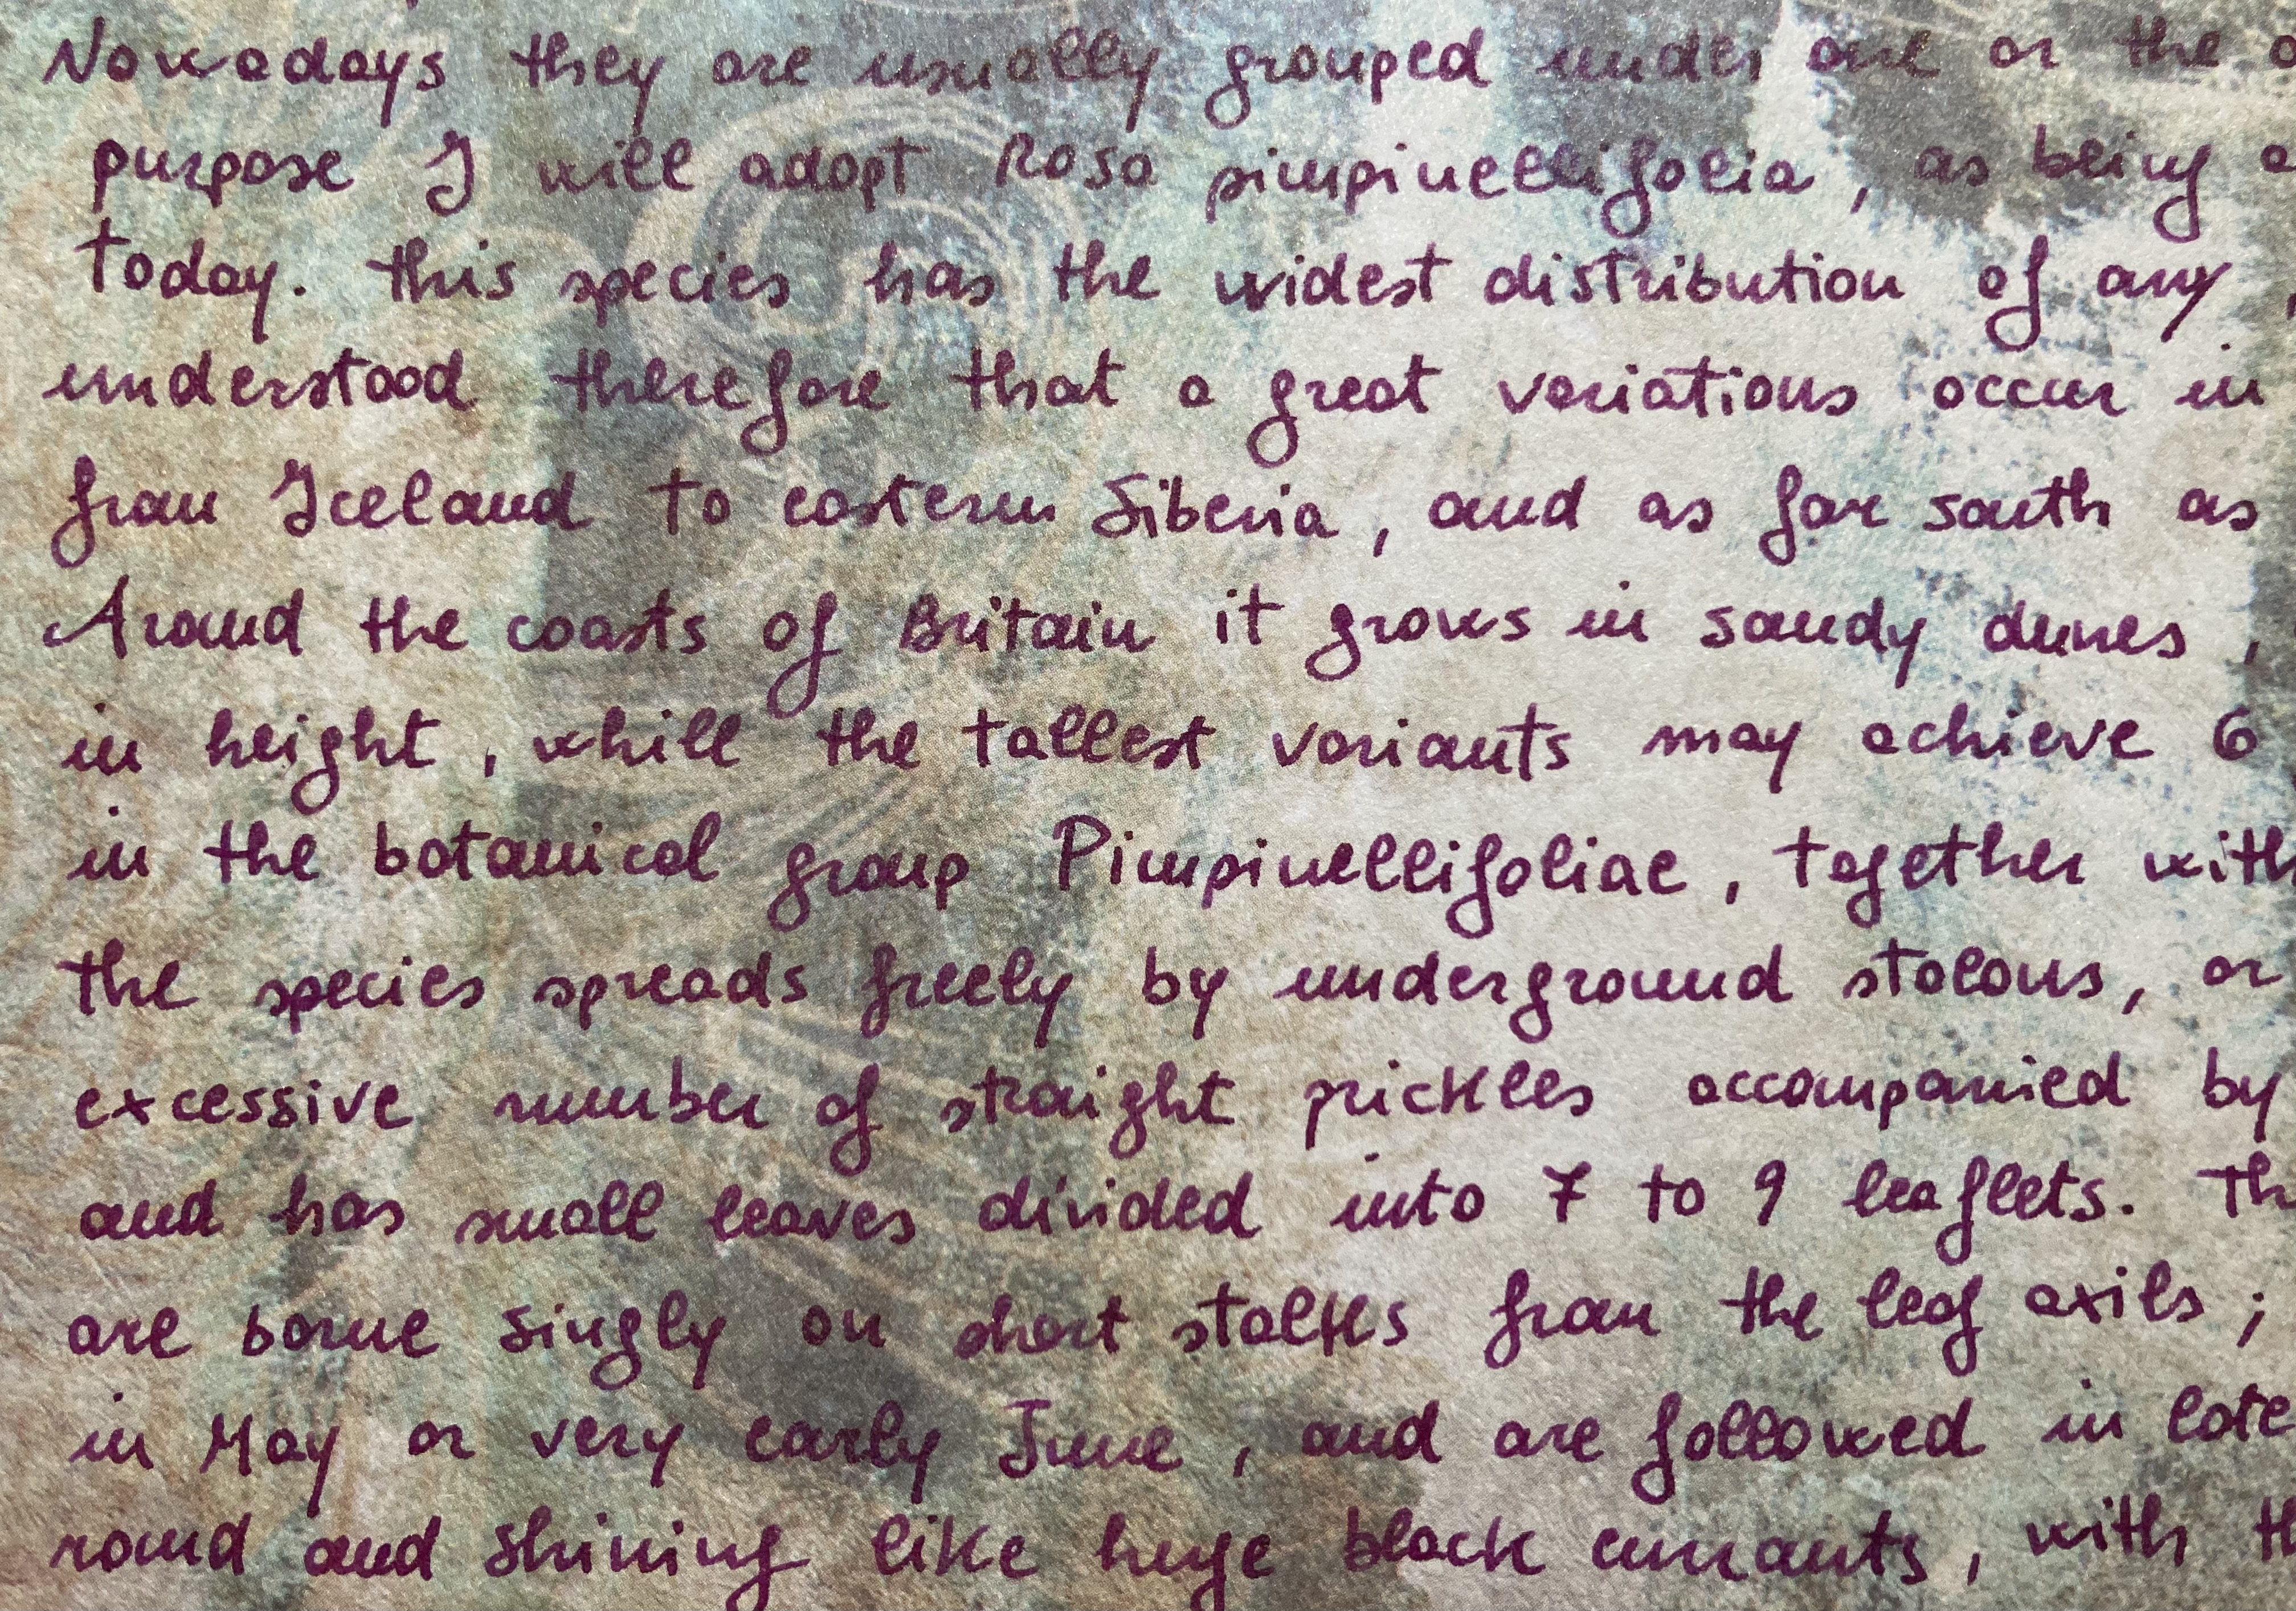 Nowadays they are usually grouped under one or the
purpose I will adopt Rosa pimpinellifolia, as being
today. This species has the widest distribution of any
understood therefore that a great variations occur in
from Iceland to eastern Siberia, and as far south as
Around the coasts of Britain it grows in sandy dunes,
in height, whill the tallest variants may achieve 6
in the botanical group Pimpinellifoliae, together with
the species spreads freely by underground stolons, or
excessive number of straight prickles accompanied by
and has small leaves divided into 7 to 9 leaflets.
are borne singly on short stalks from the leaf axils;
in May or very early June, and are followed in late
round and shining like huge black currants, with